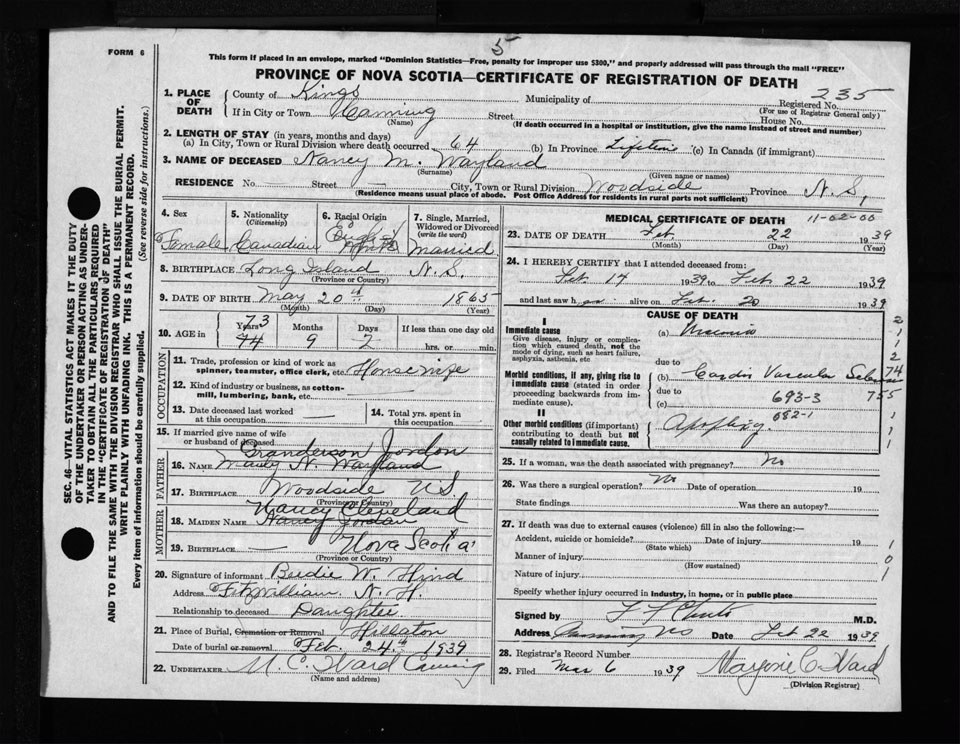 5
FORM 6
This form if placed in an envelope, marked "Dominion Statistics—Free, penalty for improper use $300," and properly addressed will pass through the mail "FREE"
PROVINCE OF NOVA SCOTIA—CERTIFICATE OF REGISTRATION OF DEATH
SEC. 46—VITAL STATISTICS ACT MAKES IT THE DUTY
OF THE UNDERTAKER OR PERSON ACTING AS UNDER-
TAKER TO OBTAIN ALL THE PARTICULARS REQUIRED
IN THE "CERTIFICATE OF REGISTRATION OF DEATH"
AND TO FILE THE SAME WITH THE DIVISION REGISTRAR WHO SHALL ISSUE THE BURIAL PERMIT.
WRITE PLAINLY WITH UNFADING INK. THIS IS A PERMANENT RECORD.
Every item of information should be carefully supplied. (See reverse side for instructions.)
1. PLACE OF DEATH County of Kings Municipality of Registered No. 235
(For use of Registrar General only)
If in City or Town Canning Street House No.
(Name) (If death occurred in a hospital or institution, give the name instead of street and number)
2. LENGTH OF STAY (in years, months and days)
(a) In City, Town or Rural Division where death occurred 64 (b) In Province Lifetime (c) In Canada (if immigrant)
3. NAME OF DECEASED Nancy M. Wayland
(Surname) (Given name or names)
RESIDENCE No. — Street — City, Town or Rural Division Woodside Province N.S.
(Residence means usual place of abode. Post Office Address for residents in rural parts not sufficient)
4. Sex 5. Nationality (Citizenship) 6. Racial Origin 7. Single, Married, Widowed or Divorced (write the word)
Female Canadian English Married
8. BIRTHPLACE Long Island N.S.
(Province or Country)
9. DATE OF BIRTH May 20th 1865
(Month) (Day) (Year)
10. AGE in Years Months Days If less than one day old
73 74 9 2 hrs. or min.
OCCUPATION
11. Trade, profession or kind of work as spinner, teamster, office clerk, etc. Housewife
12. Kind of industry or business, as cotton-mill, lumbering, bank, etc. —
13. Date deceased last worked at this occupation — 14. Total yrs. spent in this occupation
15. If married give name of wife or husband of deceased
Granderson Jordon
FATHER
16. NAME Wayland
17. BIRTHPLACE Woodside NS
(Province or Country)
MOTHER
Nancy Cleveland
18. MAIDEN NAME Nancy Jordan
19. BIRTHPLACE — Nova Scotia
(Province or Country)
20. Signature of informant Berdie W. Hind
Address Fitzwilliam. N. H.
Relationship to deceased Daughter
21. Place of Burial, Cremation or Removal Hillaton
Date of burial or removal Feb. 24th 1939
22. UNDERTAKER M. C. Ward Canning
(Name and address)
MEDICAL CERTIFICATE OF DEATH 11-02-00
23. DATE OF DEATH Feb 22 1939
(Month) (Day) (Year)
24. I HEREBY CERTIFY that I attended deceased from:
Feb. 14 1939 to Feb 22 1939
and last saw h er alive on Feb. 20 1939
CAUSE OF DEATH
I
Immediate cause (a)
Give disease, injury or complication which caused death, not the mode of dying, such as heart failure, asphyxia, asthenia, etc
due to
Morbid conditions, if any, giving rise to immediate cause (stated in order proceeding backwards from immediate cause). (b) Cardio Vascular
due to 693-3
(c)
II 082-1
Other morbid conditions (if important) contributing to death but not causally related to immediate cause.
2
1
1
2
74
755
1
1
1
25. If a woman, was the death associated with pregnancy? No
26. Was there a surgical operation? No Date of operation 19
State findings Was there an autopsy?
27. If death was due to external causes (violence) fill in also the following:—
Accident, suicide or homicide? Date of injury 19 1
(State which)
Manner of injury 0
(How sustained)
Nature of injury 1
Specify whether injury occurred in industry, in home, or in public place
Signed by M.D.
Address Canning NS Date Feb 22 1939
28. Registrar's Record Number
29. Filed Mar 6 1939 Marjorie C. Ward
(Division Registrar)